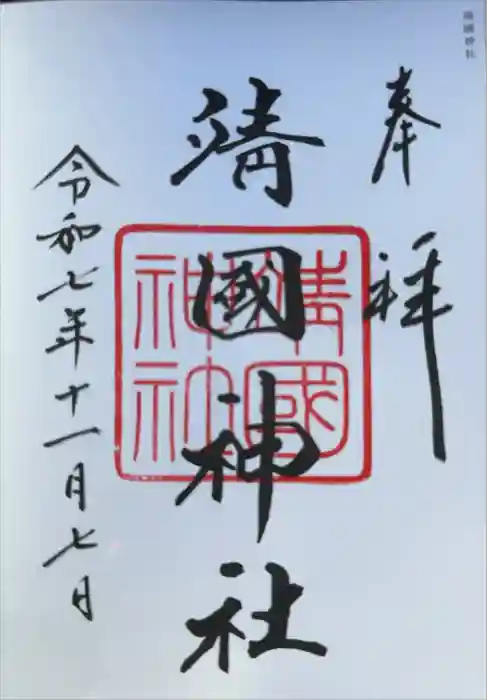 靖國神社
奉拝
靖國神社
靖國神社
令和七年十一月七日